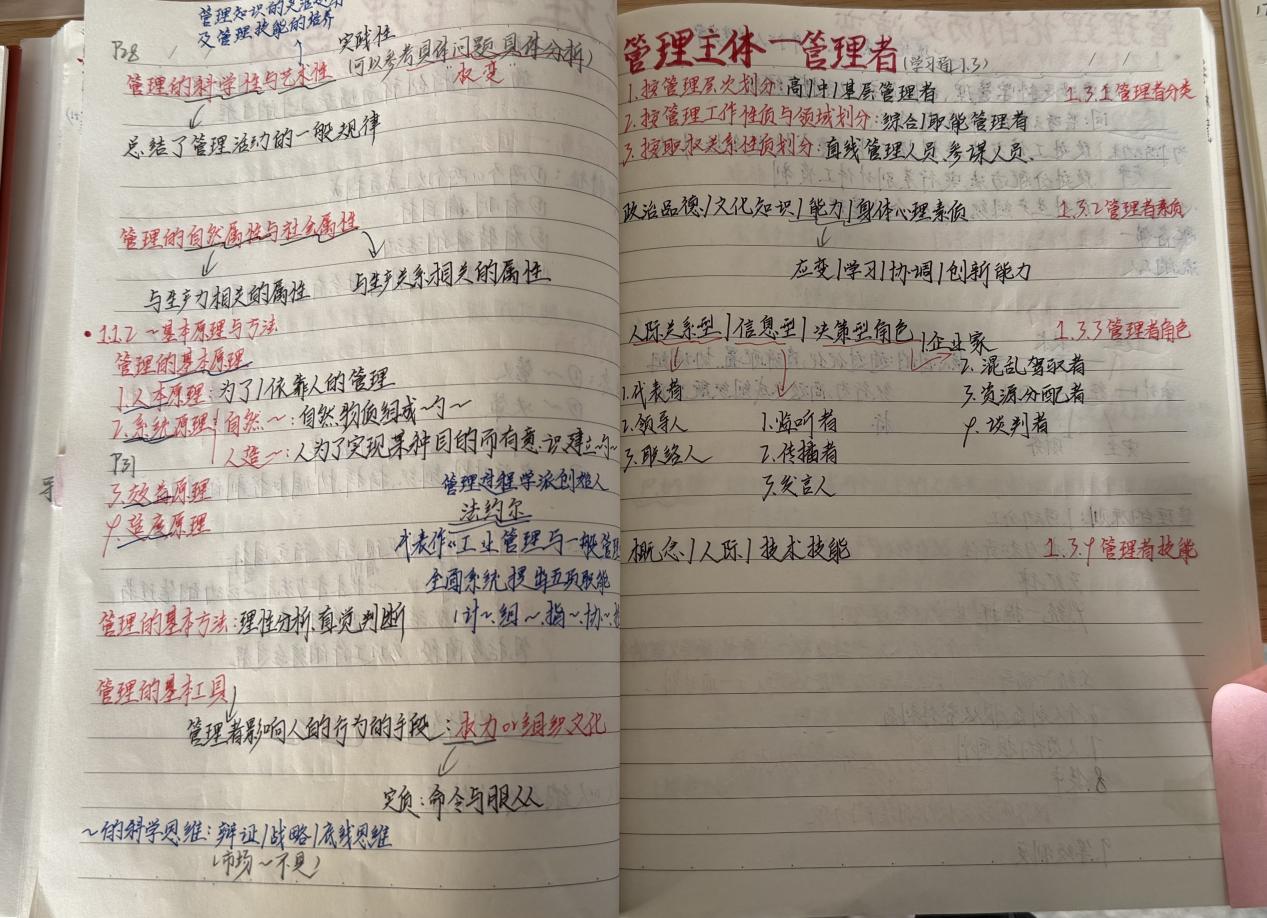 管理知识的灵活运用
及管理技能的培养
P28
实践性
(可以参考具体问题具体分析)
管理的科学性与艺术性
"权变"
总结了管理活动的一般规律
管理的自然属性与社会属性
与生产力相关的属性
与生产关系相关的属性
1.1.2 ~基本原理与方法
管理的基本原理
1.人本原理:为了/依靠人的管理
2.系统原理 自然~:自然物质组成~的~
人造~:人为了实现某种目的而有意识建立~的~
P31
3.效益原理
管理过程学派创始人
法约尔
4.适度原理
代表作《工业管理与一般管理
全面系统提出五项职能
(计~.组~.指~.协~.控
管理的基本方法:理性分析,直觉判断
管理的基本工具
管理者影响人的行为的手段:权力or组织文化
实质:命令与服从
~的科学思维:辩证/战略/底线思维
(市场~不是)
管理主体—管理者(学习通1.3)
1.按管理层次划分:高/中/基层管理者
1.3.1管理者分类
2.按管理工作性质与领域划分:综合/职能管理者
3.按职权关系性质划分:直线管理人员,参谋人员.
政治品德/文化知识/能力/身体心理素质
1.3.2管理者素质
应变/学习/协调/创新能力
人际关系型/信息型/决策型角色
1.3.3管理者角色
1.企业家
2.混乱驾驭者
1.代表者
3.资源分配者
2.领导人
1.监听者
4.谈判者
3.联络人
2.传播者
3.发言人
概念/人际/技术技能
1.3.4管理者技能